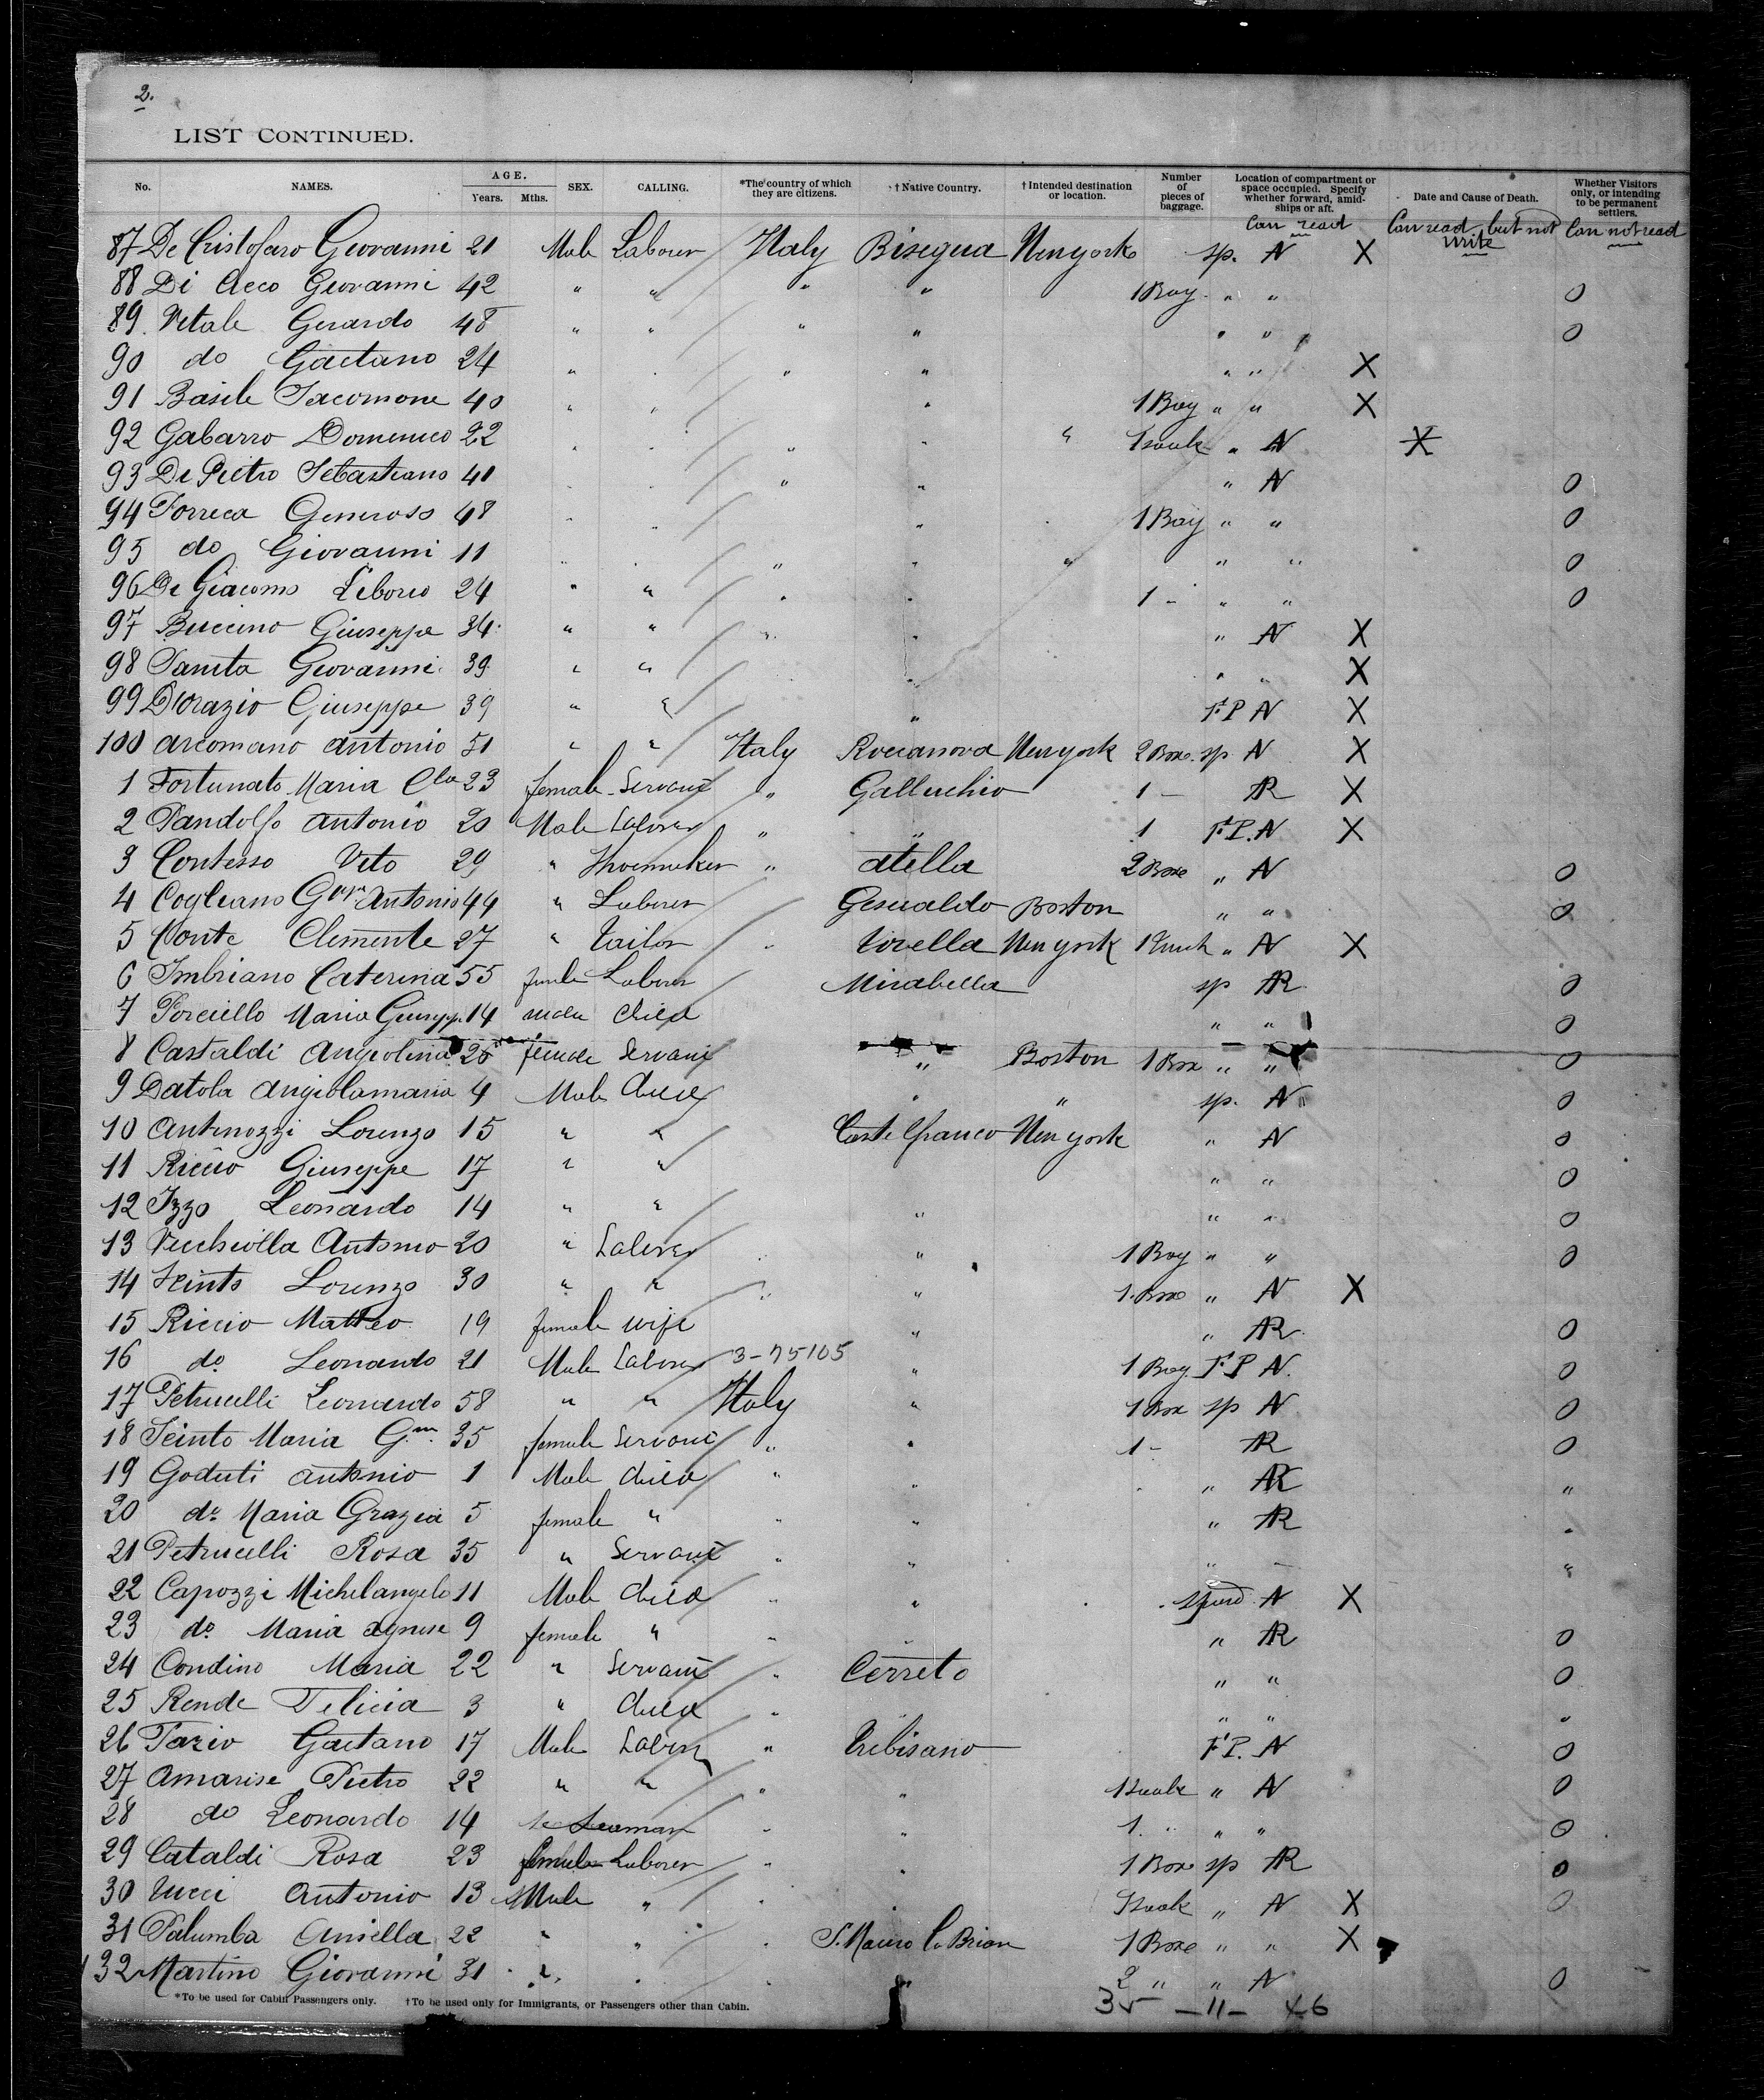 2.
LIST CONTINUED.
No. NAMES. AGE. Years. Mths. SEX. CALLING. *The country of which they are citizens. †Native Country. †Intended destination or location. Number of pieces of baggage. Location of compartment or space occupied. Specify whether forward, amidships or aft. Date and Cause of Death. Whether Visitors only, or intending to be permanent settlers.
Can read Can read, but not write Can not read
87 De Cristofaro Giovanni 21 Male Labourer Italy Bisegna New york sp. N X
88 Di Cicco Giovanni 42 " " " " 1 Bag " " 0
89 Vitale Gerardo 48 " " " " " " 0
90 do Gaetano 24 " " " " " " X
91 Basile Iacomone 40 " " " 1 Bag " " X
92 Gabarro Domenico 22 " " " " " 1 sack " N X
93 De Pietro Sebastiano 41 " " " " " N 0
94 Porreca Generoso 48 " " " 1 Bag " " 0
95 do Giovanni 11 " " " " " " " 0
96 De Giacomo Liborio 24 " " " " 1 - " " 0
97 Buccino Giuseppe 34 " " " " " N X
98 Giovanni 39 " " " " " X
99 D'Orazio Giuseppe 39 " " " F P N X
100 Arcomano Antonio 51 " " Italy Roccanova New york 2 Boxe sp N X
1 Fortunato Maria 23 female Servant " Gallicchio 1 - R X
2 Pandolfo Antonio 20 Male Laborer " " 1 F P. N X
3 Contesso Vito 29 " Shoemaker " Atella 2 Boxe " N 0
4 Cogliano Antonio 44 " Laborer Gesualdo Boston " " 0
5 Conte Clemente 27 " Tailor " Torella New york 1 " N X
6 Imbriano Caterina 55 female Laborer Mirabella sp R 0
7 Porciello Maria 14 male Child " " 0
8 Castaldi Angiolina 26 female Servant " Boston 1 Box " " 0
9 Datola Angiolamaria 4 Male Child " " sp. N 0
10 Antinozzi Lorenzo 15 " " Castelfranco New york " N 0
11 Riccio Giuseppe 17 " " " " 0
12 Izzo Leonardo 14 " " " " " 0
13 Vecchiolla Antonio 20 " Laborer " 1 Bag " " 0
14 Lorenzo 30 " " " " 1 Boxe " N X
15 Riccio Matteo 19 female wife " " R 0
16 do. Leonardo 21 Male Laborer 3-75105 " 1 Bag F P N. 0
17 Petrucelli Leonardo 58 " " Italy " 1 Box sp N 0
18 Scinto Maria 35 female Servant " " 1 - R 0
19 Goduti Antonio 1 Male Child " " " R "
20 do. Maria Grazia 5 female " " " " R "
21 Petrucelli Rosa 35 " Servant " " " - "
22 Capozzi Michelangelo 11 Male Child " " N X
23 do. Maria Agnese 9 female " " " R 0
24 Condino Maria 22 " Servant " Cerreto " " 0
25 Rende Felicia 3 " Child " " " "
26 Gaetano 17 Male Laborer " Trebisano F P. N 0
27 Amarise Pietro 22 " " " " 1 sack " N 0
28 do Leonardo 14 " " 1. " " " 0
29 Cataldi Rosa 23 female Laborer " " 1 Boxe sp R 0
30 Ucci Antonio 13 Male " " " 1 sack " N X 0
31 Palumba Aniella 22 " " " S. Mauro 1 Boxe " " X
132 Martino Giovanni 31 " " " " 2 " " N 0
*To be used for Cabin Passengers only. †To be used only for Immigrants, or Passengers other than Cabin.
35 - 11 - 46